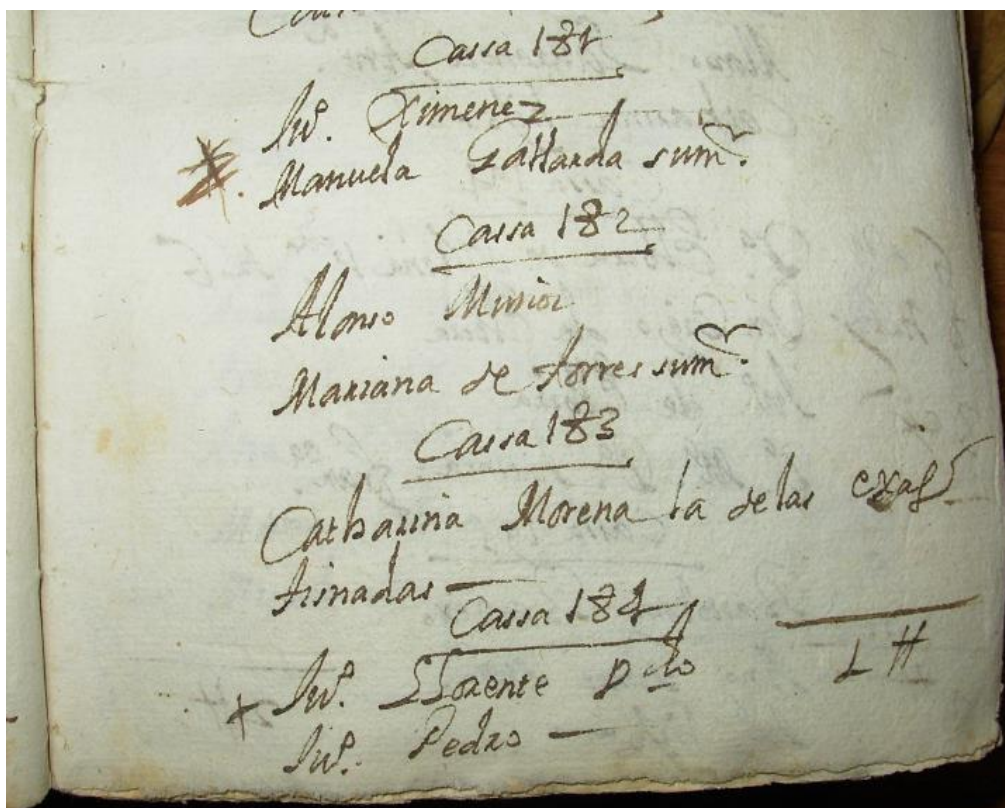 Cassa 181
Ju.º Ximenez
Manuela Gallarda sum.r
Cassa 182
Alonso Muñoz
Mariana de torres sum.r
Cassa 183
Catharina Morena la de las
trinadas —
Cassa 184
Ju.º Llorente
Ju.º Pedro —